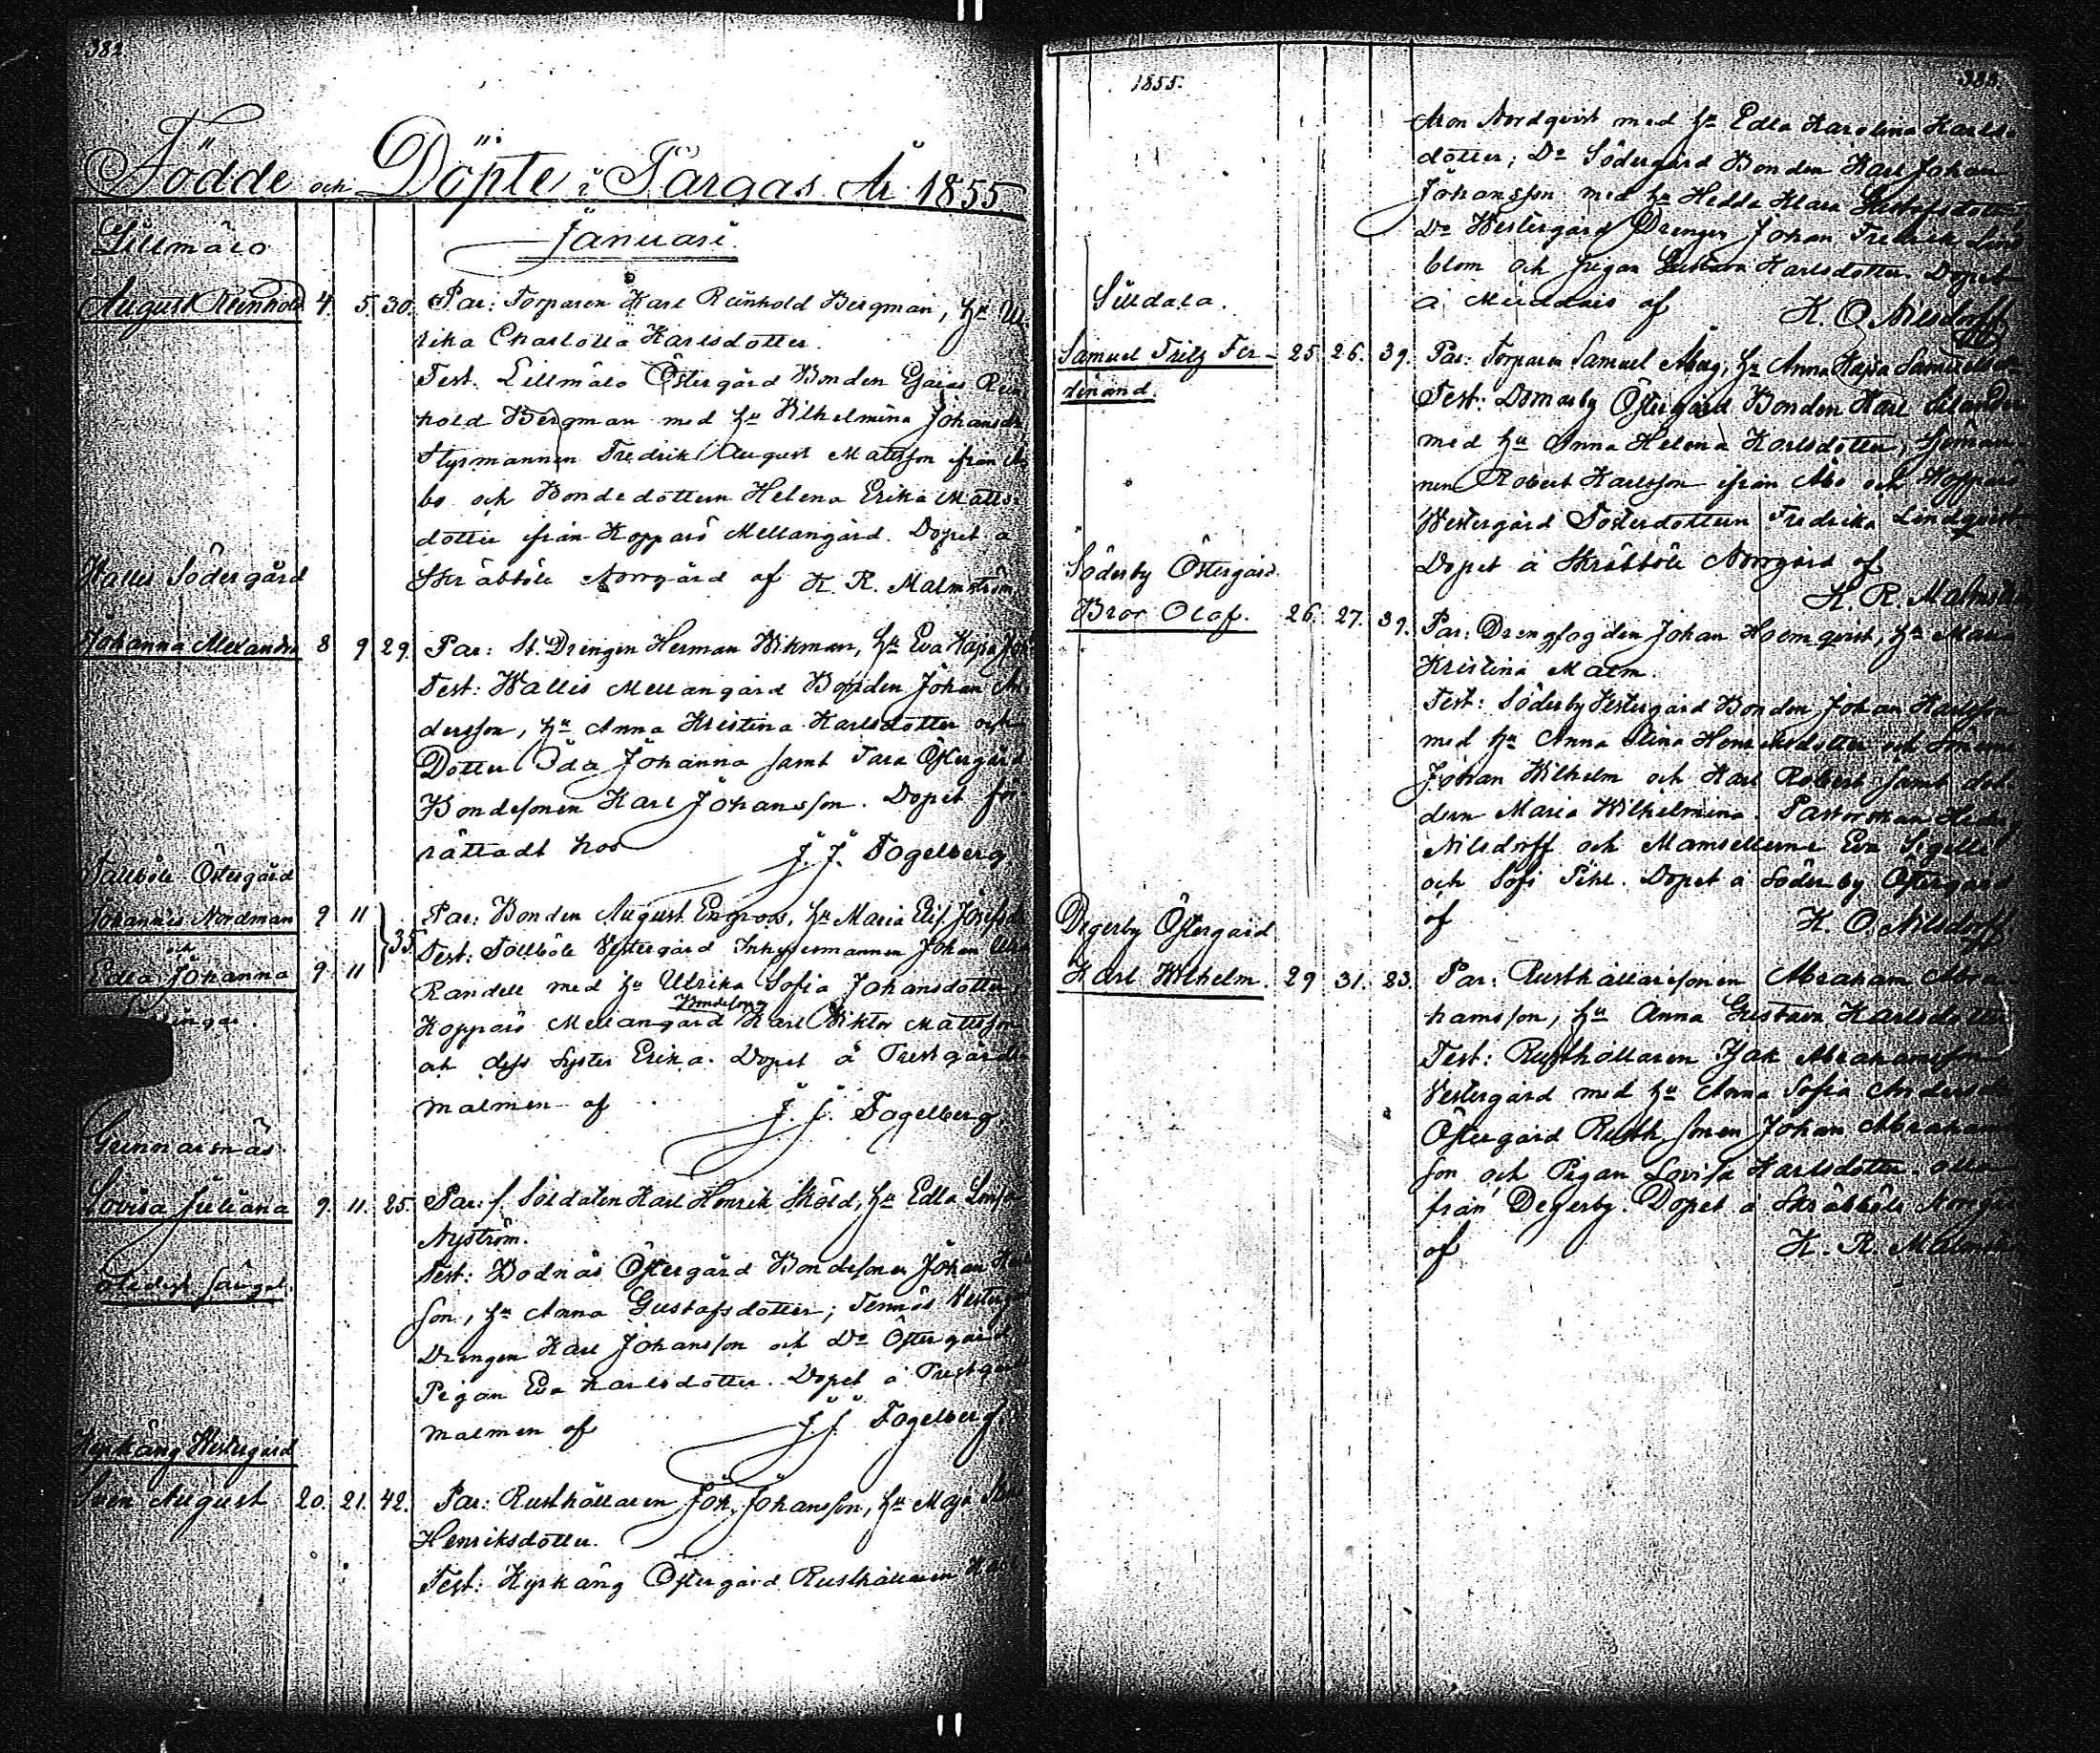 382
Födde och Döpte i Pargas År 1855
Januari.
Lillmälo
August Reinhold 4. 5. 30. Par: Torparen Karl Reinhold Bergman, hu Ul
rika Charlotta Karlsdotter.
Test. Lillmälo Östergård Bonden Esaias Rein
hold Bergman med hu Wilhelmina Johansdr
Styrmannen Fredrik August Mattsson från Å
bo och Bondedottern Helena Erika Matts
dotter från Kopparö Mellangård. Dopet å
Skräbböle Norrgård af K. R. Malmström
Wallis Södergård
Johanna Alexandra 8 9 29. Par: St. Drengen Herman Wikman, hu Eva Kajsa Joh
Test: Wallis Mellangård Bonden Johan An
dersson, hu Anna Kristina Karlsdotter och
Dotter Ida Johanna samt Tara Östergård
Bondesonen Karl Johansson. Dopet för
rättadt hos J. J. Fogelberg.
Tallböle Östergård
Johannes Nordman 9 11
och
Edla Johanna 9 11
35. Par: Bonden August Engroos, hu Maria Elis. Josefsdr
Test: Tollböle Westergård Inhysesmannen Johan
Randell med hu Ulrika Sofia Johansdotter,
Kopparö Mellangård Bondesonen Karl Wiktor Mattsson
och dess Syster Erika. Dopet å Prestgårds
malmen af J. J. Fogelberg.
Gunnarsnäs
Lovisa Juliana 9. 11. 25. Par: f. Soldaten Karl Henrik Sköld, hu Edla Lovisa
Nyström.
Test: Bodnäs Östergård Bondesonen Johan
son, hu Anna Gustafsdotter; Tennäs Westergård
Drengen Karl Johansson och Do Östergård
Pigan Eva Karlsdotter. Dopet å Prestgårds
malmen af J. J. Fogelberg
Kyrkäng Westergård
Sven August 20. 21. 42. Par: Rusthållaren Joh. Johansson, hu Maja
Henriksdotter.
Test: Kyrkäng Östergård Rusthållaren
1855. 383.
Nordqvist med hu Edla Karolina Karls
dotter; Do Södergård Bonden Karl Johan
Johansson med hu Hedda Klara Gustafsdotter,
Do Westergård Drengen Johan Fredrik Lind
blom och pigan Gustava Karlsdotter. Dopet
å Muddais af K. O. Nilsdorff
Silldala.
Samuel Fritz Fer-
dinand. 25. 26. 39. Par: Torparen Samuel Åberg, hu Anna Kajsa Samuelsdr
Test: Domarby Östergård Bonden Karl Selander
med hu Anna Helena Karlsdotter, Sjöman
nen Robert Karlsson från Åbo och Kopparö
Westergård Fosterdottern Fredrika Lindqvist
Dopet å Skräbböle Norrgård af
K. R. Malmström
Söderby Östergård.
Bror Olof. 26. 27. 39. Par: Drengfogden Johan Holmqvist, hu Maria
Kristina Malm.
Test: Söderby Westergård Bonden Johan Karlsson
med hu Anna Stina Henriksdotter och Sönerne
Johan Wilhelm och Karl Robert samt dot
dern Maria Wilhelmina. Pastorskan Hedvig
Nilsdorff och Mamsellerne Eva Sigell
och Sofi Pihl. Dopet å Söderby Östergård
af K. O. Nilsdorff
Degerby Östergård
Karl Wilhelm. 29 31. 23. Par: Rusthållaresonen Abraham Abra
hamsson, hu Anna Gustava Karlsdotter
Test: Rusthållaren Isak Abrahamsson
Westergård med hu Anna Sofia Andersdr
Östergård Rusth. sonen Johan Abrahams
son och Pigan Lovisa Karlsdotter alla
från Degerby. Dopet å Skräbböle Norrgård
af K. R. Malmström